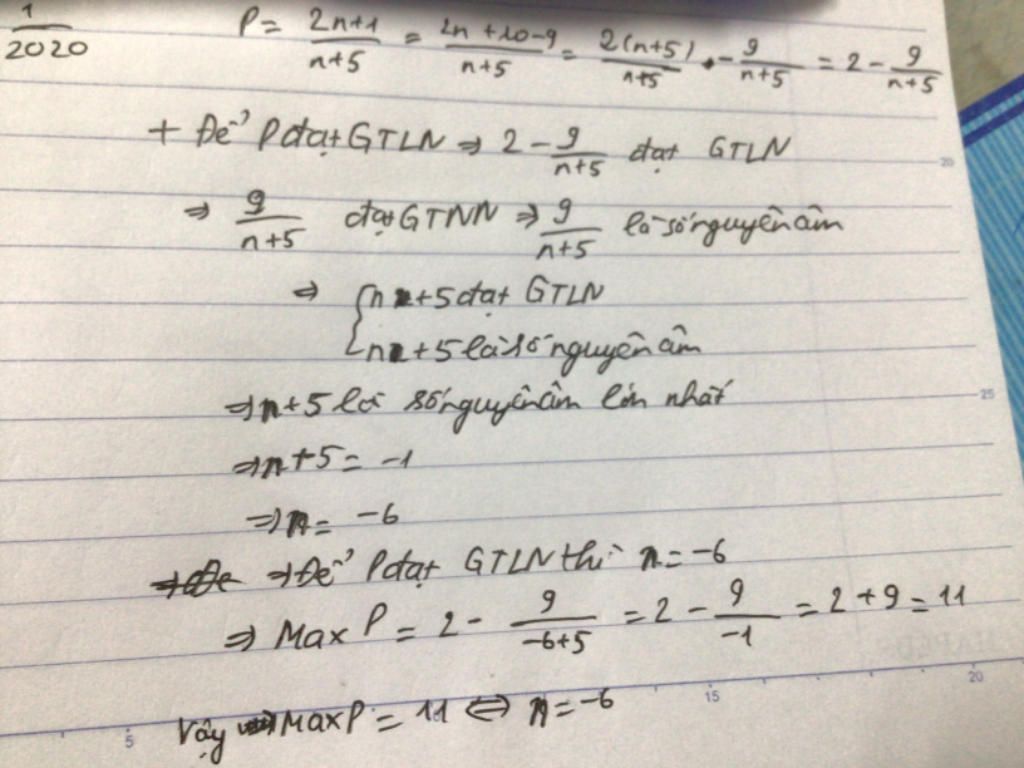 1/2020
P = (2n+1)/(n+5) = (2n+10-9)/(n+5) = 2(n+5)/(n+5) - 9/(n+5) = 2 - 9/(n+5)
+ Để P đạt GTLN ⇒ 2 - 9/(n+5) đạt GTLN
⇒ 9/(n+5) đạt GTNN ⇒ 9/(n+5) là số nguyên âm
⇒ { n+5 đạt GTLN
n+5 là số nguyên âm
⇒ n+5 là số nguyên âm lớn nhất
⇒ n+5 = -1
⇒ n = -6
⇒ Để P đạt GTLN thì n = -6
⇒ Max P = 2 - 9/(-6+5) = 2 - 9/(-1) = 2 + 9 = 11
Vậy Max P = 11 ⇔ n = -6
20
25
5
15
20